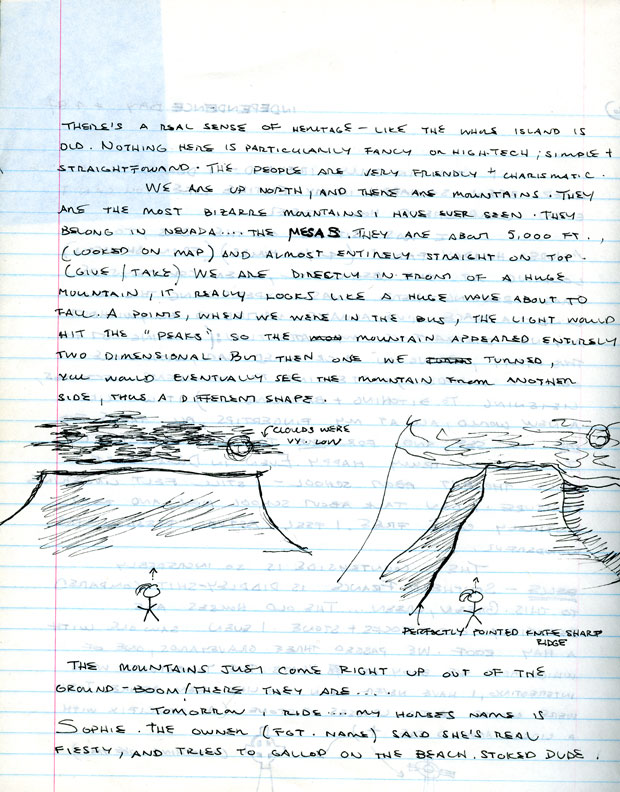 THERE'S A REAL SENSE OF HERITAGE - LIKE THE WHOLE ISLAND IS
OLD. NOTHING HERE IS PARTICULARILY FANCY OR HIGH-TECH; SIMPLE +
STRAIGHTFORWARD. THE PEOPLE ARE VERY FRIENDLY + CHARISMATIC.
WE ARE UP NORTH, AND THERE ARE MOUNTAINS. THEY
ARE THE MOST BIZARRE MOUNTAINS I HAVE EVER SEEN. THEY
BELONG IN NEVADA.... THE MESAS. THEY ARE ABOUT 5,000 FT.,
(LOOKED ON MAP) AND ALMOST ENTIRELY STRAIGHT ON TOP.
(GIVE/TAKE) WE ARE DIRECTLY IN FRONT OF A HUGE
MOUNTAIN, IT REALLY LOOKS LIKE A HUGE WAVE ABOUT TO
FALL. A POINTS, WHEN WE WERE IN THE BUS, THE LIGHT WOULD
HIT THE "PEAKS" SO THE MOUNTAIN APPEARED ENTIRELY
TWO DIMENSIONAL. BUT THEN ONE WE TURNED,
YOU WOULD EVENTUALLY SEE THE MOUNTAIN FROM ANOTHER
SIDE, THUS A DIFFERENT SHAPE.
CLOUDS WERE
VY. LOW
PERFECTLY POINTED KNIFE SHARP
RIDGE
THE MOUNTAINS JUST COME RIGHT UP OUT OF THE
GROUND - BOOM! THERE THEY ARE....
TOMORROW I RIDE.... MY HORSES NAME IS
SOPHIE. THE OWNER (FGT. NAME) SAID SHE'S REAL
FIESTY, AND TRIES TO GALLOP ON THE BEACH. STOKED DUDE.